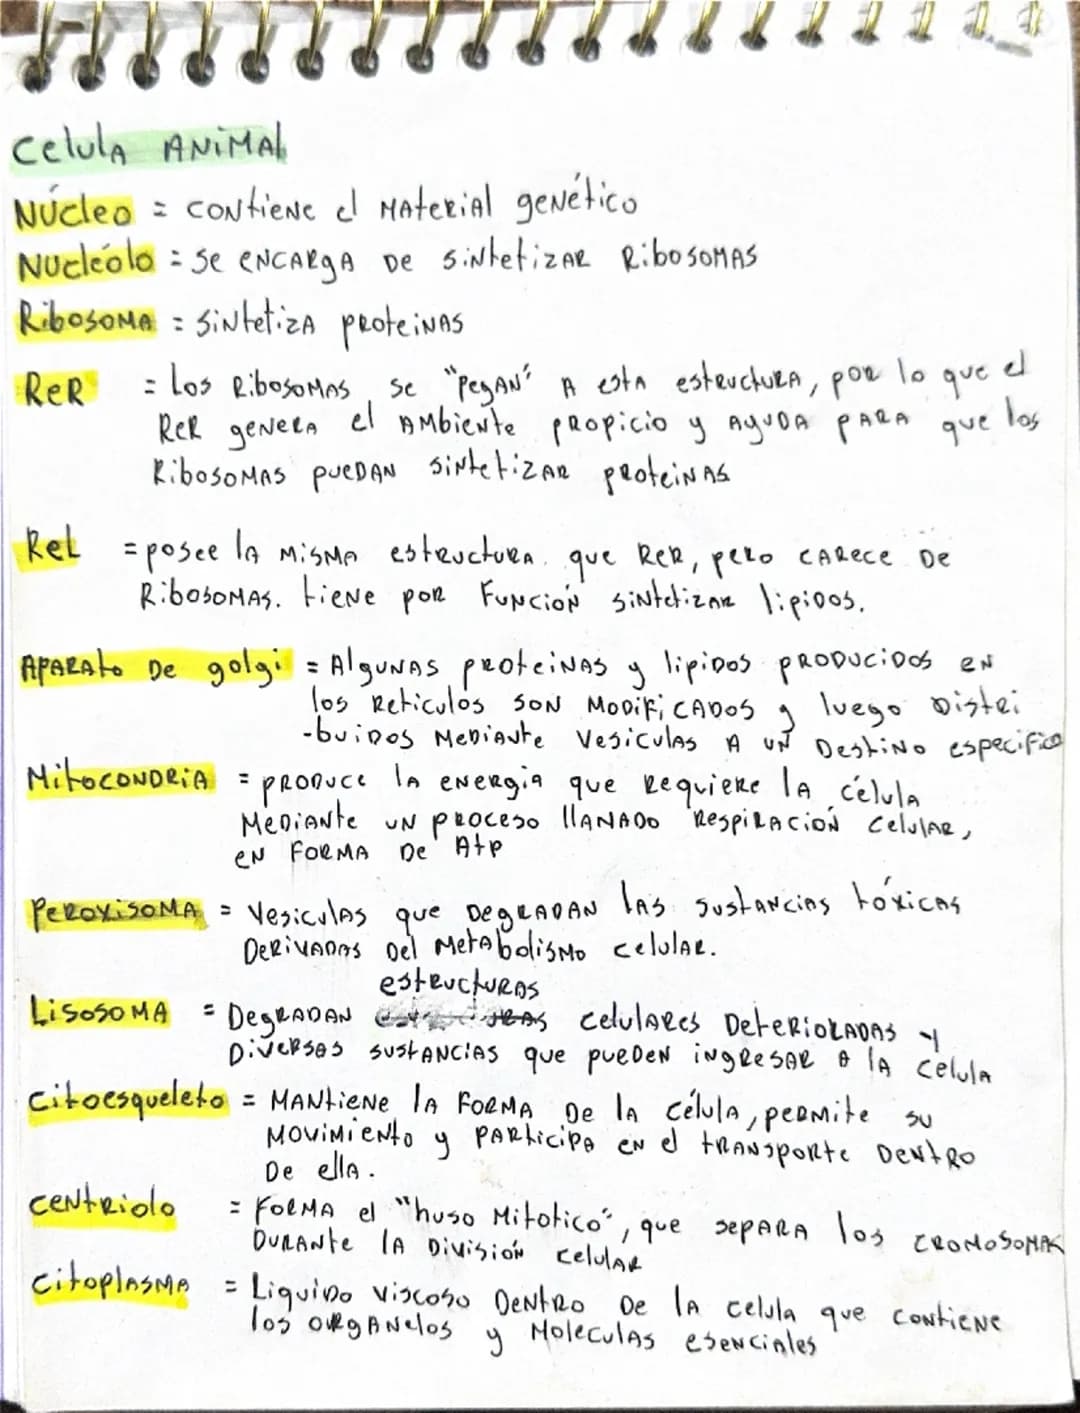 Celula ANiMAl
Núcleo = CONtiENE el MAtERiAl geNético
Nucleólo = Se ENCARgA De SiNtetizAR RibOSOMAS
RibOSOMA = SiNtetizA pROteiNAS
ReR = Los RibOSOMAS se "pegAN" A estA estRuctuRA, por lo que el
RER geNeRA el AMbieNte pROpicio y AyuDA pARA que los
RibOSOMAS pueDAN siNtetizAR pROteiNAS
Rel = posee lA MisMA estRuctuRA que RER, peRo cARece De
RibOSOMAS. tieNe poR FuNcióN siNtetizAR lipiDos.
ApARAto De golgi = AlguNAS pROteiNAS y lipiDos pRODuciDos eN
los Reticulos soN MoDificADos y luego Distri
-buiDos MeDiANte VesiculAs A uN DestiNo especifico
MitocoNDRiA = pRODuce lA eNeRgiA que RequieRe lA célulA
MeDiANte uN pRoceso llANADo RespiRAcióN celulAR,
eN FoRMA De Atp
PeRoxisoMA = VesiculAs que DegRADAN lAs sustANciAs tóxicAs
DeRivADAs Del MetAbolisMo celulAR.
estRuctuRAs
LisosoMA = DegRADAN celulARes DeteRioRADAs y
DiveRsAs sustANciAs que pueDeN iNgResAR A lA celulA
Citoesqueleto = MANtieNe lA FoRMA De lA célulA, peRMite su
MoviMieNto y pARticipA eN el tRANspoRte DeNtRo
De ellA.
CeNtRiolo = FoRMA el "huso Mitotico", que sepARA los cRoMosoMAs
DuRANte lA DivisióN celulAR
CitoplAsMA = LiquiDo viscoso DeNtRo De lA celulA que coNtieNe
los oRgANelos y MoleculAs eseNciAles